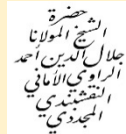 حضرة
الشيخ المولانا
جلال الدين أحمد
الراوي الأماني
النقشبندي
المجددي